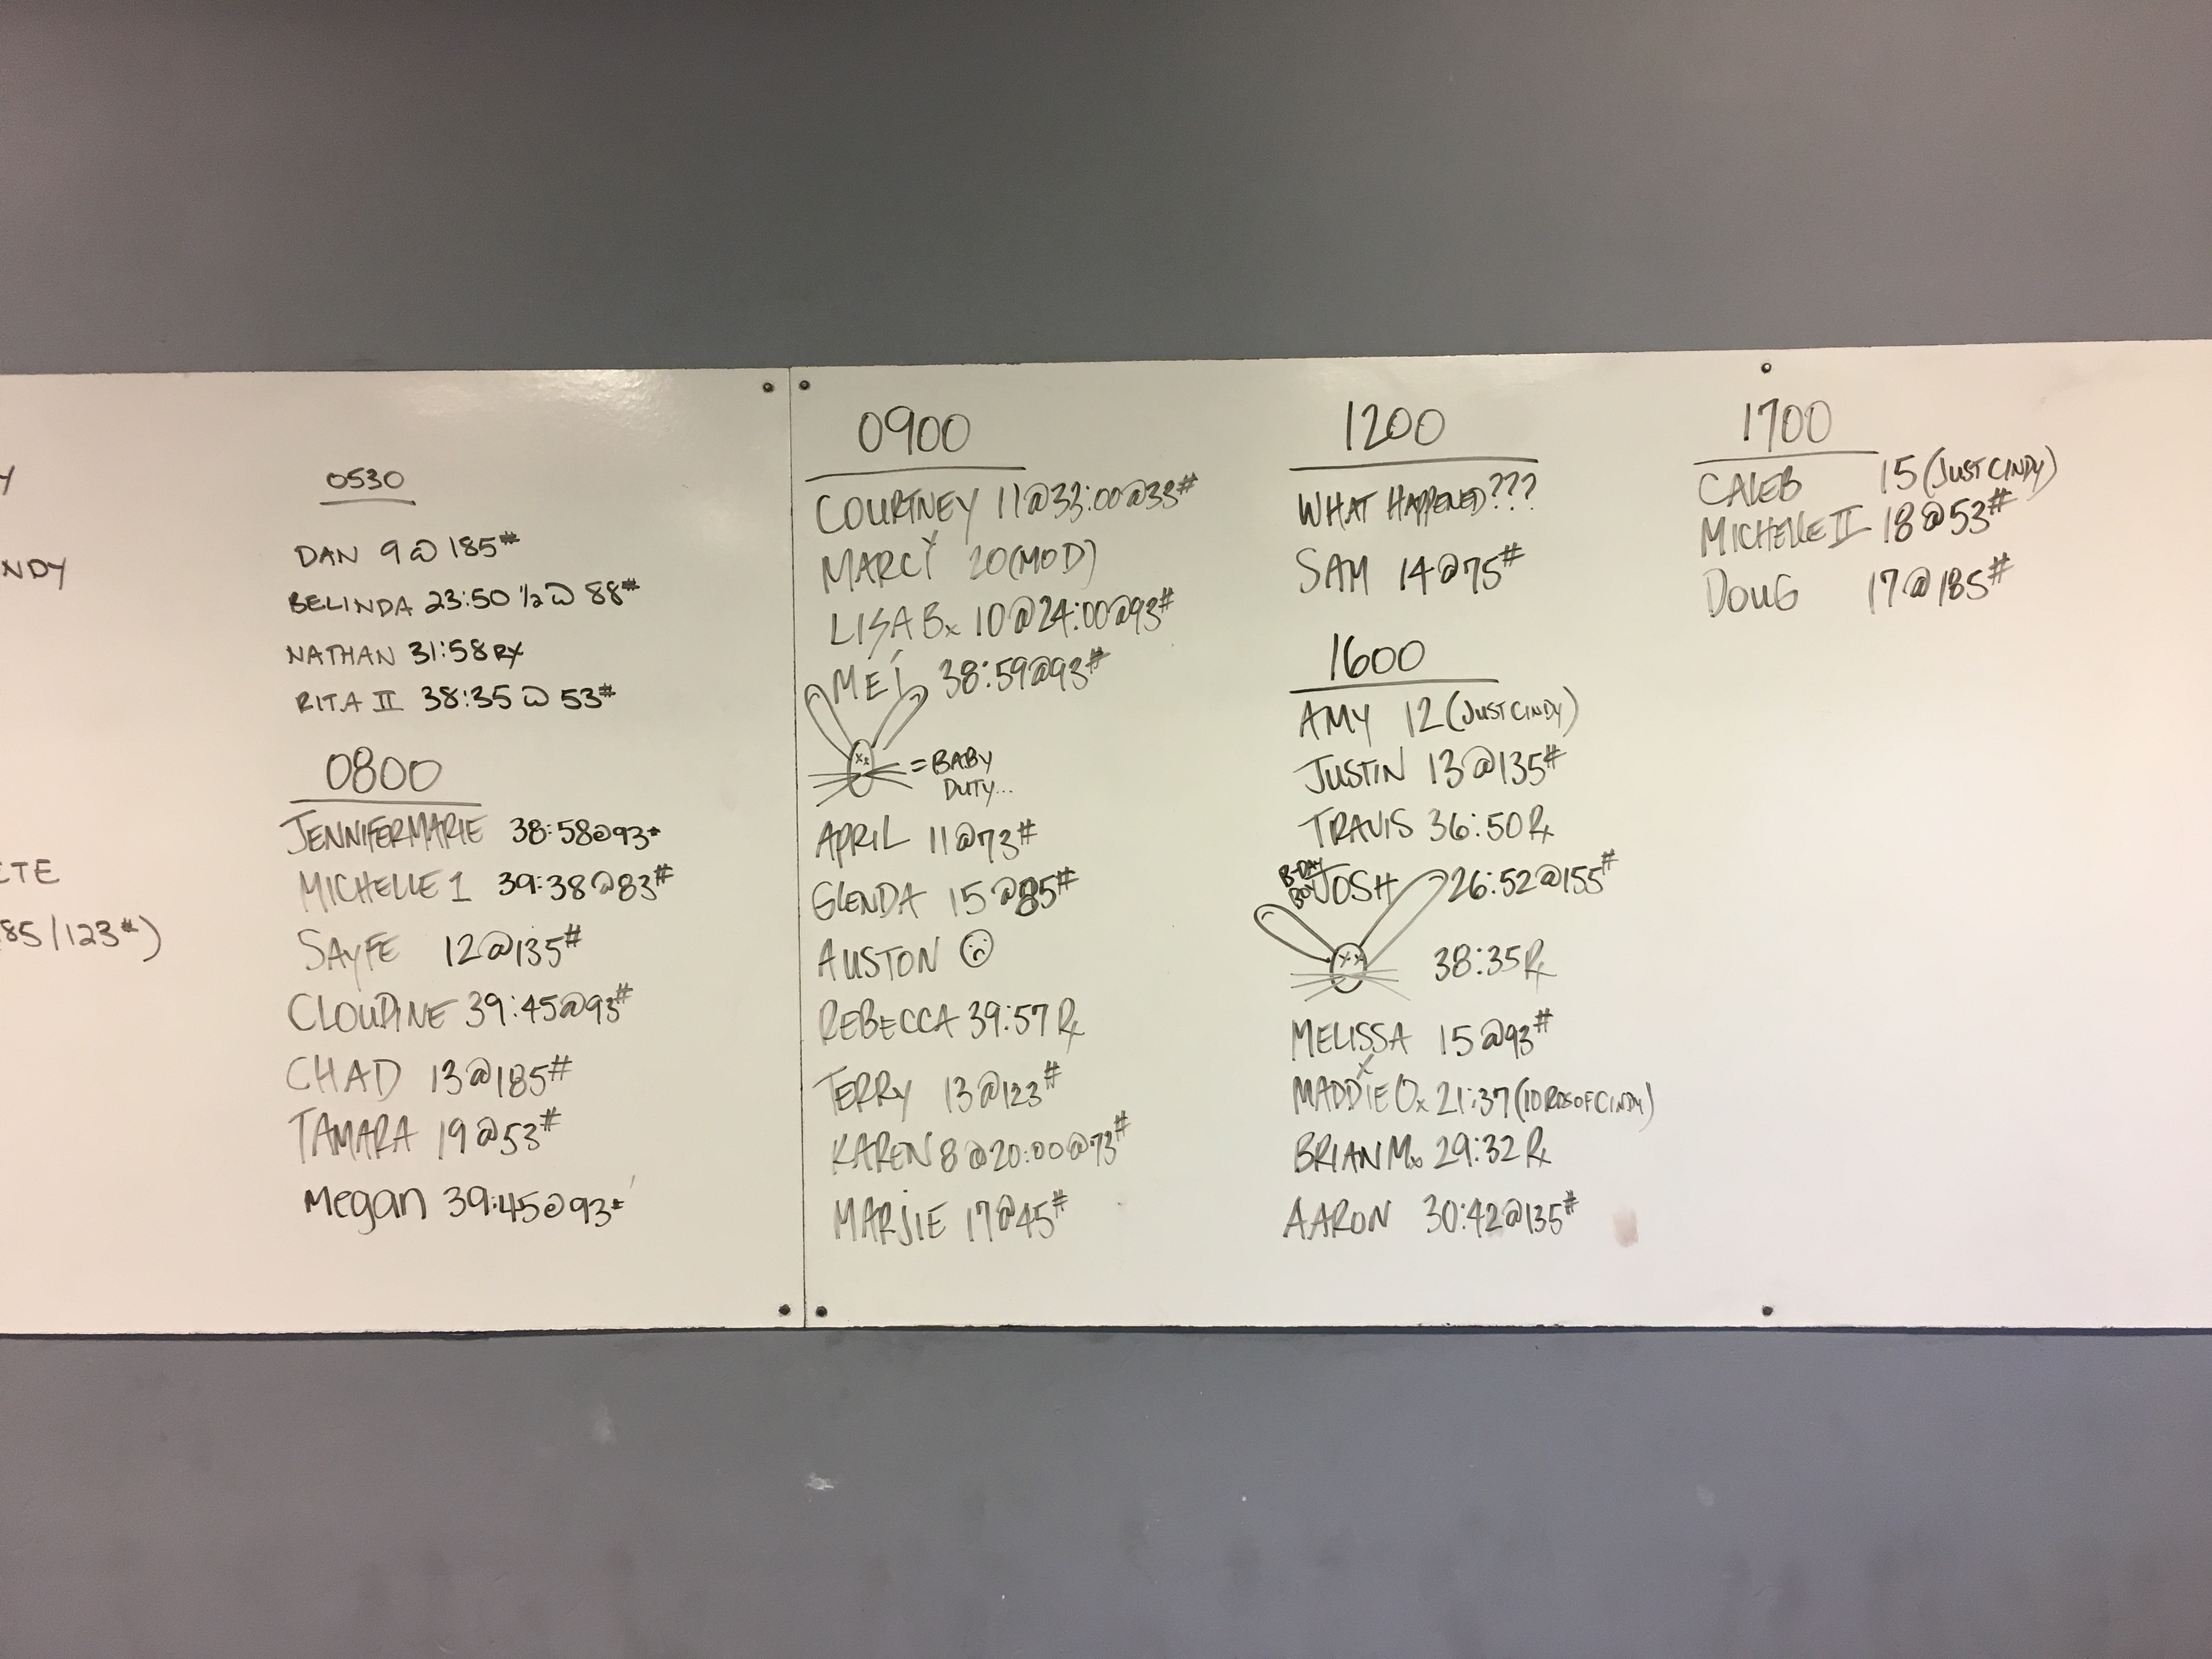 Y
NDY
ETE
85/123#)
0530
DAN 9@185#
BELINDA 23:50 1/2@88#
NATHAN 31:58RX
RITA II 38:35@53#
0800
JENNIFERMARIE 38:58@93#
MICHELLE 1 39:38@83#
SAYFE 12@135#
CLOUDINE 39:45@93#
CHAD 13@185#
TAMARA 19@53#
Megan 39:45@93#
0900
COURTNEY 11@33:00@33#
MARCY 20(MOD)
LISA B. 10@24:00@93#
MEI 38:59@93#
= BABY
DUTY...
APRIL 11@73#
GLENDA 15@85#
AUSTON
REBECCA 39:57 Rx
TERRY 13@123#
KAREN 8@20:00@73#
MARJIE 17@45#
1200
WHAT HAPPENED???
SAM 14@75#
1600
AMY 12(JUST CINDY)
JUSTIN 13@135#
TRAVIS 36:50 Rx
B-DAY
BOY JOSH 26:52@155#
38:35 Rx
MELISSA 15@93#
MADDIE O. 21:37(10RDSOFCINDY)
BRIAN M. 29:32 Rx
AARON 30:42@135#
1700
CALEB 15(JUST CINDY)
MICHELLE II 18@53#
DOUG 17@185#